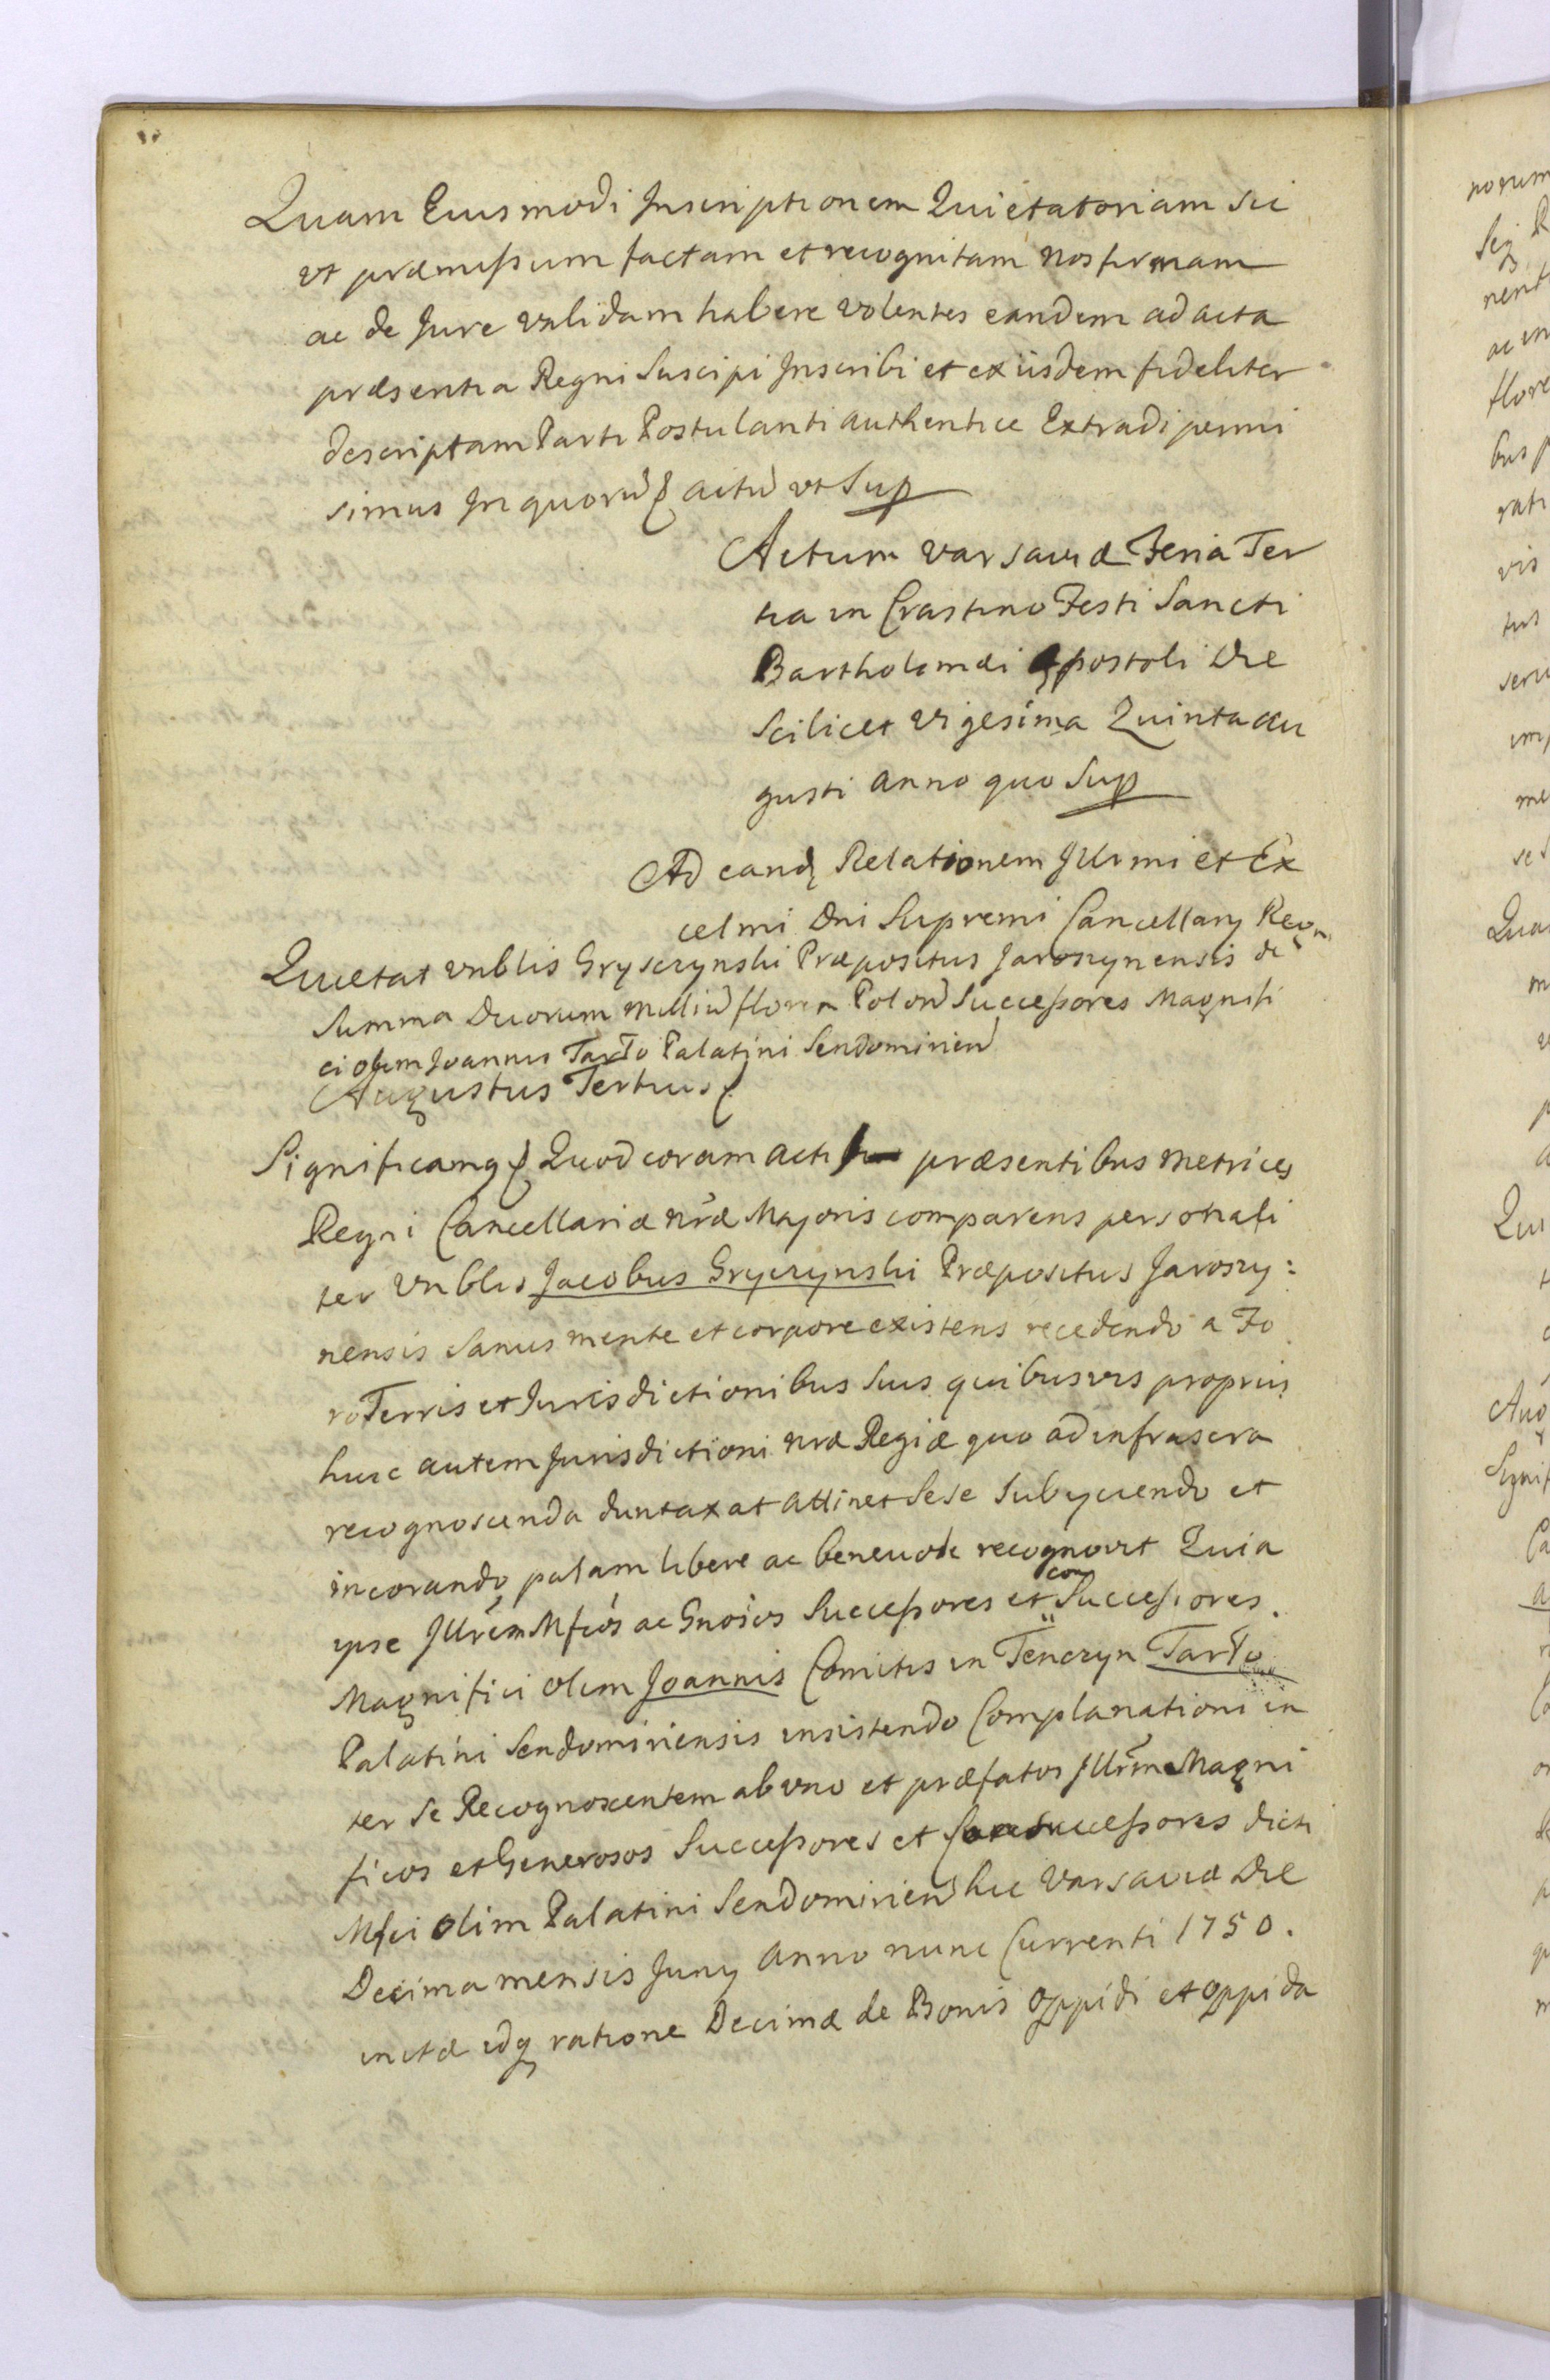 Quam Eiusmodi Inscriptionem Quietatoriam Sic
vt præmissum factam et recognitam nos firmam
ac de Jure validam habere volentes eandem ad acta
præsentia Regni Suscipi Inscribi et ex iisdem fideliter
descriptam Parti Postulanti authentice Extradi permi
simus In quorũ actũ vt Sup
Actum Varsaviæ Feria Ter
tia in Crastino Festi Sancti
Bartholomæi Apostoli Die
Scilicet Vigesima Quinta Au
gusti Anno quo Sup
Ad eandẽ Relationem Illrmi et Ex
celmi Dni Supremi Cancellarij Regn
Quietat vnblis Gryszynski Præpositus Jaroszynensis de
Summa Duorum milliũ floren Polonũ Successores Magnifi
ci olim Joannis Tarło Palatini Sendomirien
Augustus Tertius
Significamq Quod coram actis præsentibus metrices
Regni Cancellariæ nræ Majoris comparens personali
ter Vnblis Jacobus Gryczynski Præpositus Jaroszy:
nensis Sanus mente et corpore existens recedendo a Fo
ro Terris et Jurisdictionibus Suis quibusvis propriis
huic autem Jurisdictioni nræ Regiæ quo ad infrascra
recognoscenda duntaxat attinet Sese Subyciendo et
incorando, palam libere ac benevole recognovit Quia
ipse Illrem Mfcos ac Gnosos Successores et con Successores
Magnifici olim Joannis Comitis in Tenczyn Tarło
Palatini Sendomiriensis insistendo Complanationi in
ter Se Recognoscentem ab vno et præfatos Illrem Magni
ficos et Generosos Successores et Consuccessores dicti
Mfci olim Palatini Sendomirien hic Varsaviæ Die
Decima mensis Juny Anno nunc Currenti 1750.
initæ idq ratione Decimæ de Bonis Oppidi et oppida